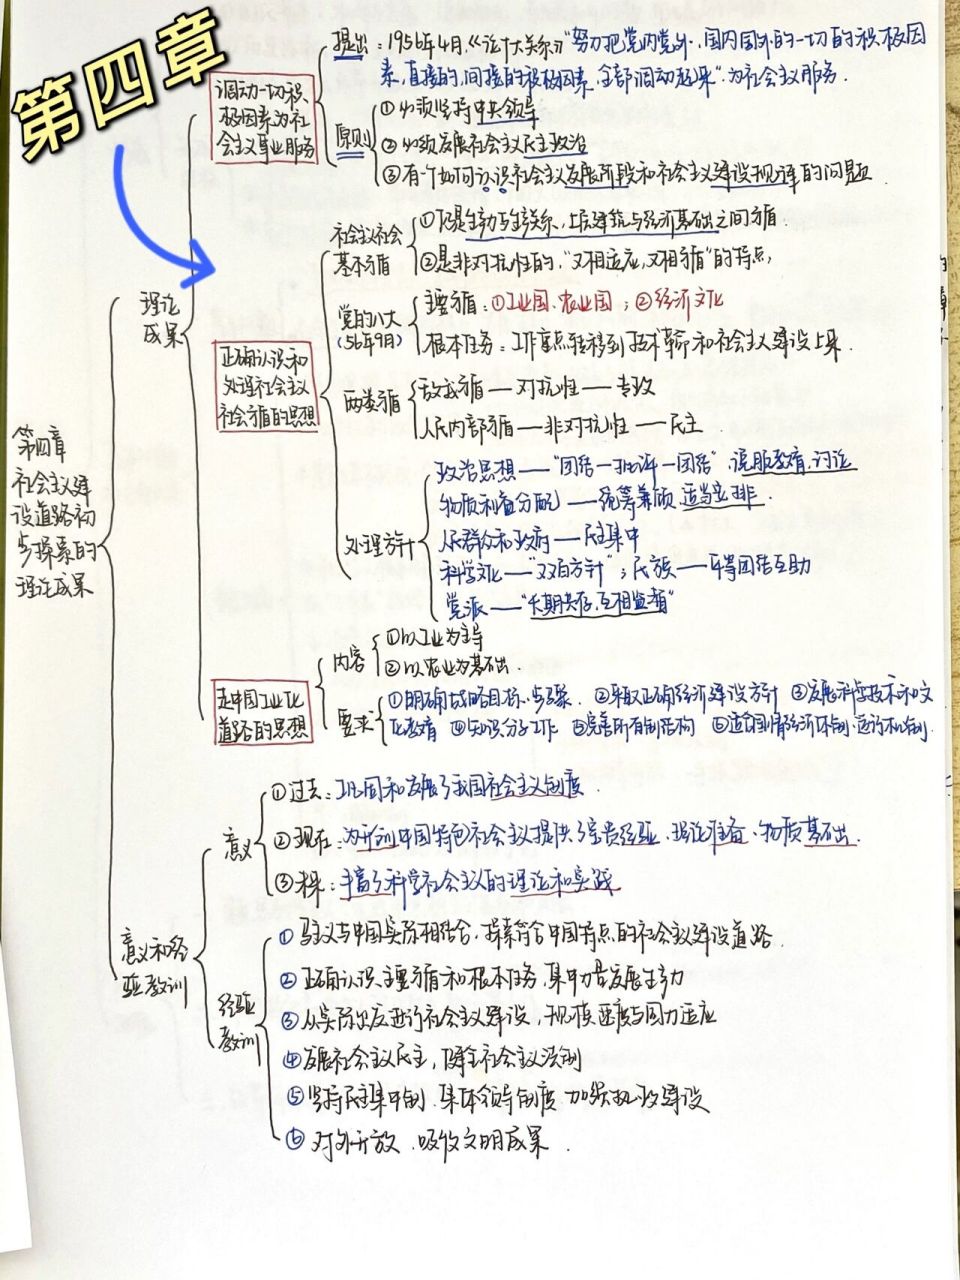 第四章
提出：1956年4月《论十大关系》“努力把党内党外，国内国外的一切的积极因
素，直接的，间接的积极因素，全部调动起来”为社会主义服务．
调动一切积
极因素为社
会主义事业服务
原则
①必须坚持中央领导
②必须发展社会主义民主政治
③有个如何认识社会主义发展阶段和社会主义建设规律的问题
社会主义社会
基本矛盾
上层建筑与经济基础之间矛盾
②是非对抗性的，“又相适应，又相矛盾”的特点，
理论
成果
党的八大
(56年9月)
主要矛盾：①工业国、农业国；②经济文化
根本任务：工作重点转移到技术革命和社会主义建设上来．
正确认识和
处理社会主义
社会矛盾的思想
两类矛盾
敌我矛盾——对抗性——专政
人民内部矛盾——非对抗性——民主
第四章
社会主义建
设道路初
步探索的
理论成果
处理方针
政治思想——“团结—批评—团结”，说服教育，讨论
物质利益分配——统筹兼顾，适当安排．
人民群众和政府——民主集中
科学文化——“双百方针”；民族——平等团结互助
党派——“长期共存，互相监督”
走中国工业化
道路的思想
内容
①以工业为主导
②以农业为基础．
要求
①明确战略目标、步骤．②采取正确经济建设方针 ③发展科学技术和文
化教育 ④知识分子工作 ⑤完善所有制结构 ⑥适合国情经济体制、运行机制．
意义
①过去：巩固和发展了我国社会主义制度．
②现在：为开创中国特色社会主义提供了宝贵经验、理论准备、物质基础．
③未来：丰富了科学社会主义的理论和实践
意义和经
验教训
经验
教训
① 马主义与中国实际相结合，探索符合中国特点的社会主义建设道路．
② 正确认识主要矛盾和根本任务，集中力量发展生产力
③ 从实际出发进行社会主义建设，规模速度与国力适应
④ 发展社会主义民主，健全社会主义法制
⑤ 坚持民主集中制、集体领导制度，加强执政建设
⑥ 对外开放、吸收文明成果．